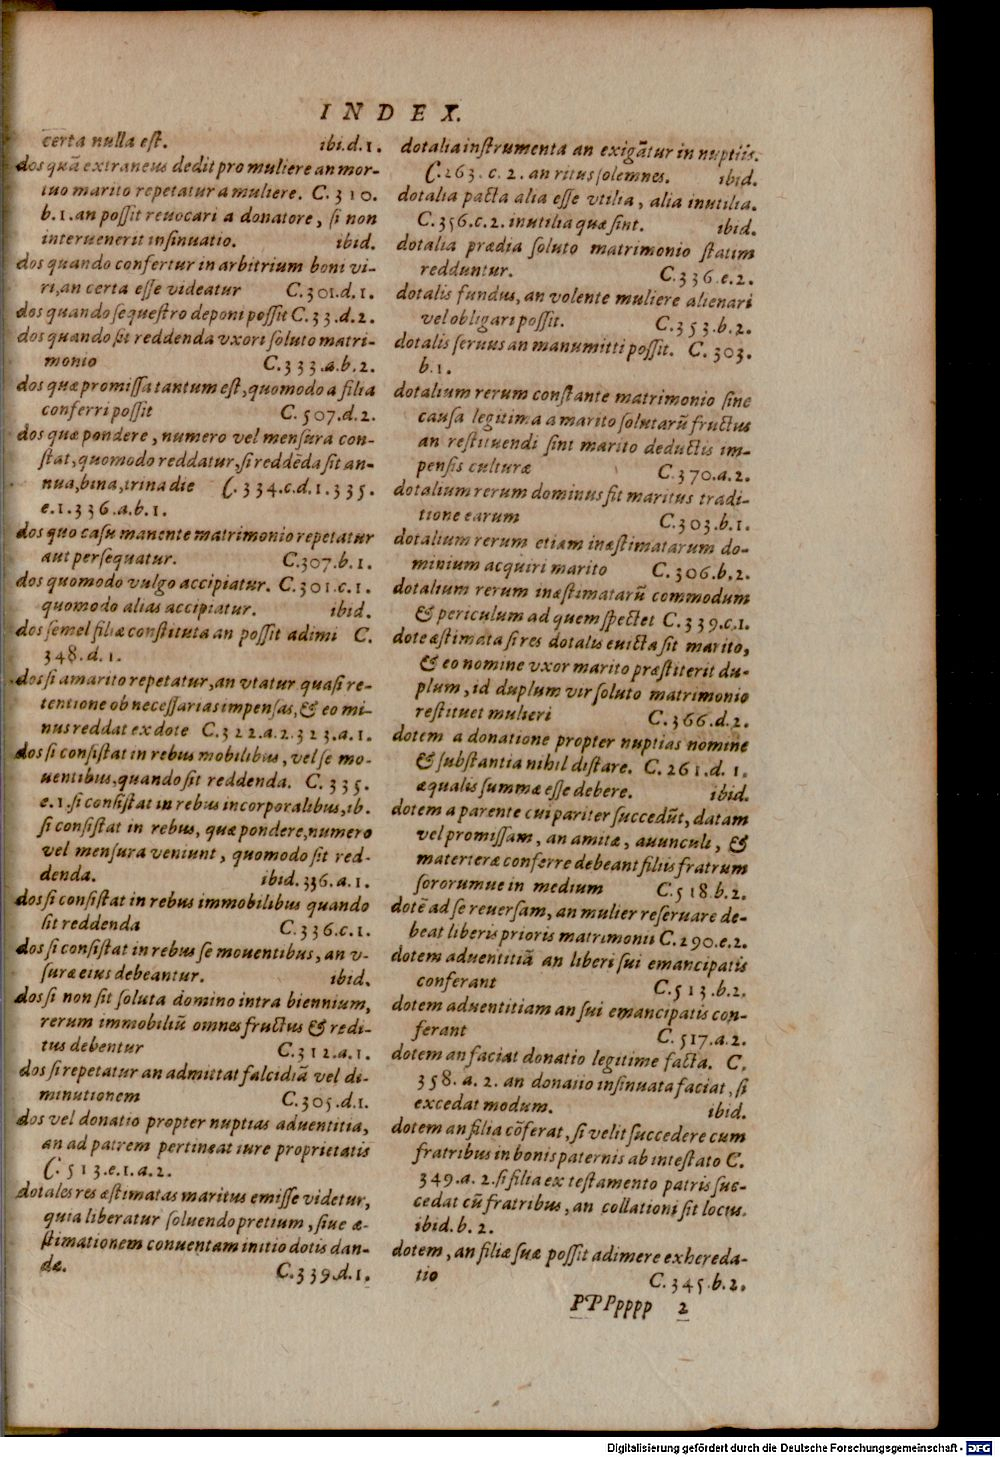 INDEX.
certa nulla eſt. ibi.d.1.
dos quã extraneus dedit pro muliere an mor-
tuo marito repetatur a muliere. C.310.
b.1.an poſſit reuocari a donatore, ſi non
interuenerit inſinuatio. ibid.
dos quando confertur in arbitrium boni vi-
ri,an certa eſſe videatur C.301.d.1.
dos quando ſequeſtro deponi poſſit C.33.d.2.
dos quando ſit reddenda vxori ſoluto matri-
monio C.333.a.b.2.
dos quæ promiſſa tantum eſt, quomodo a filia
conferri poſſit C.507.d.2.
dos quæ pondere, numero vel menſura con-
ſtat,quomodo reddatur,ſi reddẽda ſit an-
nua,bina,trina die C.334.c.d.1.335.
e.1.336.a.b.1.
dos quo caſu manente matrimonio repetatur
aut perſequatur. C.307.b.1.
dos quomodo vulgo accipiatur. C.301.c.1.
quomodo alias accipiatur. ibid.
dos ſemel filiæ conſtituta an poſſit adimi C.
348.d.1.
dos ſi a marito repetatur,an vtatur quaſi re-
tentione ob neceſſarias impenſas,& eo mi-
nus reddat ex dote C.322.a.2.323.a.1.
dos ſi conſiſtat in rebus mobilibus, vel ſe mo-
uentibus,quando ſit reddenda. C.335.
e.1.ſi conſiſtat in rebus incorporalibus,ib.
ſi conſiſtat in rebus, quæ pondere,numero
vel menſura veniunt, quomodo ſit red-
denda. ibid.336.a.1.
dos ſi conſiſtat in rebus immobilibus quando
ſit reddenda C.336.c.1.
dos ſi conſiſtat in rebus ſe mouentibus, an v-
ſuræ eius debeantur. ibid.
dos ſi non ſit ſoluta domino intra biennium,
rerum immobiliũ omnes fructus & redi-
tus debentur C.312.a.1.
dos ſi repetatur an admittat falcidiã vel di-
minutionem C.305.d.1.
dos vel donatio propter nuptias aduentitia,
an ad patrem pertineat iure proprietatis
C.513.e.1.a.2.
dotales res æſtimatas maritus emiſſe videtur,
quia liberatur ſoluendo pretium, ſiue æ-
ſtimationem conuentam initio dotis dan-
dæ. C.339.d.1.
dotalia inſtrumenta an exigãtur in nuptiis.
C.263.c.2.an ritus ſolemnes. ibid.
dotalia pacta alia eſſe vtilia, alia inutilia.
C.356.c.2.inutilia quæ ſint. ibid.
dotalia prædia ſoluto matrimonio ſtatim
redduntur. C.336.e.2.
dotalis fundus, an volente muliere alienari
vel obligari poſſit. C.353.b.2.
dotalis ſeruus an manumitti poſſit. C.303.
b.1.
dotalium rerum conſtante matrimonio ſine
cauſa legitima a marito ſolutarũ fructus
an reſtituendi ſint marito deductis im-
penſis culturæ C.370.a.2.
dotalium rerum dominus ſit maritus tradi-
tione earum C.303.b.1.
dotalium rerum etiam inæſtimatarum do-
minium acquiri marito C.306.b.2.
dotalium rerum inæſtimatarũ commodum
& periculum ad quem ſpectet C.339.c.1.
dote æſtimata ſi res dotalis euicta ſit marito,
& eo nomine vxor marito præſtiterit du-
plum, id duplum vir ſoluto matrimonio
reſtituet mulieri C.366.d.2.
dotem a donatione propter nuptias nomine
& ſubſtantia nihil diſtare. C.261.d.1.
æqualis ſummæ eſſe debere. ibid.
dotem a parente cui pariter ſuccedũt, datam
vel promiſſam, an amitæ, auunculi, &
materteræ conferre debeant filiis fratrum
ſororumue in medium C.518.b.2.
dotẽ ad ſe reuerſam, an mulier reſeruare de-
beat liberis prioris matrimonii C.290.e.2.
dotem aduentitiã an liberi ſui emancipatis
conferant C.513.b.2.
dotem aduentitiam an ſui emancipatis con-
ferant C.517.a.2.
dotem an faciat donatio legitime facta. C.
358.a.2.an donatio inſinuata faciat,ſi
excedat modum. ibid.
dotem an filia cõferat, ſi velit ſuccedere cum
fratribus in bonis paternis ab inteſtato C.
349.a.2.ſi filia ex teſtamento patris ſuc-
cedat cũ fratribus, an collationi ſit locus.
ibid.b.2.
dotem, an filiæ ſuæ poſſit adimere exhereda-
tio C.345.b.2.
PPPpppp 2
Digitalisierung gefördert durch die Deutsche Forschungsgemeinschaft - DFG